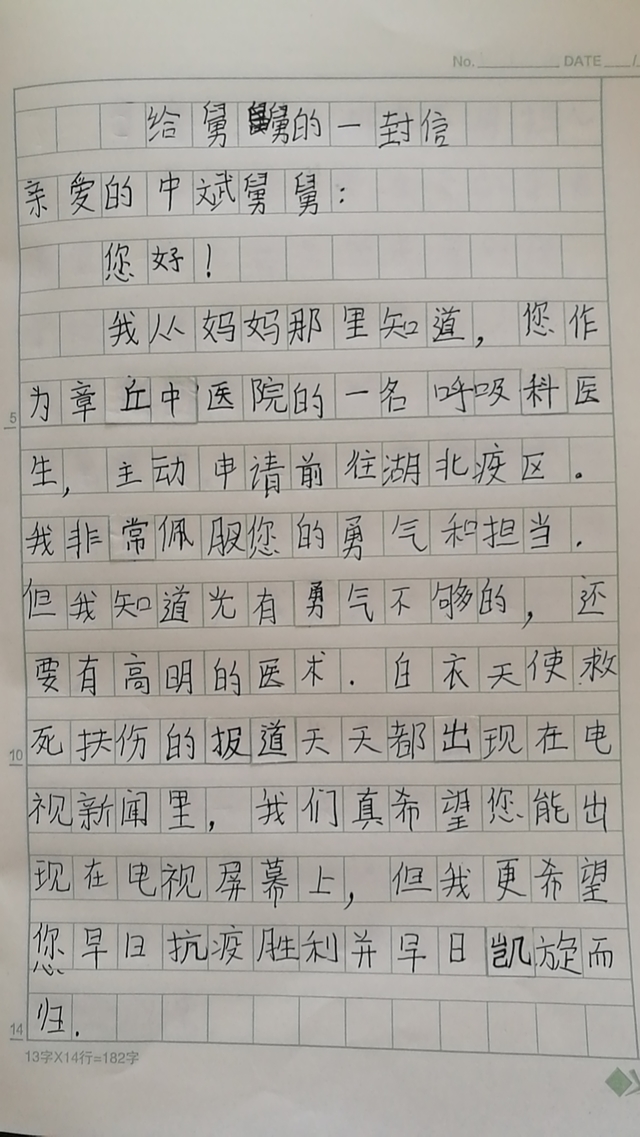 No. DATE /
给舅舅的一封信
亲爱的中斌舅舅：
您好！
我从妈妈那里知道，您作
5 为章丘中医院的一名呼吸科医
生，主动申请前往湖北疫区。
我非常佩服您的勇气和担当.
但我知道光有勇气不够的，还
要有高明的医术.白衣天使救
10 死扶伤的报道天天都出现在电
视新闻里，我们真希望您能出
现在电视屏幕上，但我更希望
您早日抗疫胜利并早日凯旋而
14 归.
13字X14行=182字